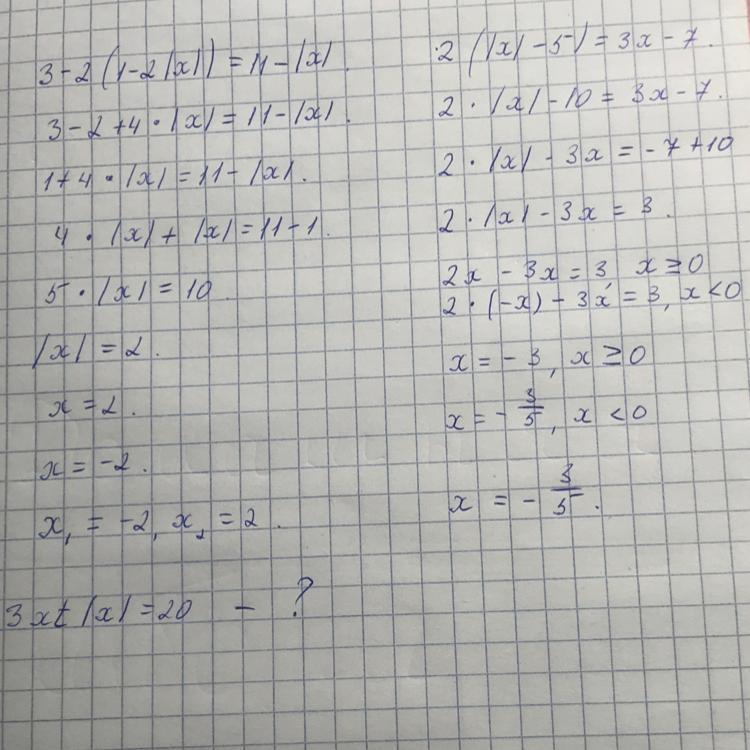 3-2(1-2|x|)=11-|x|.
3-2+4·|x|=11-|x|.
1+4·|x|=11-|x|.
4·|x|+|x|=11-1.
5·|x|=10.
|x|=2.
x=2.
x=-2.
x₁=-2, x₂=2.
3x+|x|=20 - ?
2(|x|-5)=3x-7.
2·|x|-10=3x-7.
2·|x|-3x=-7+10
2·|x|-3x=3.
2x-3x=3 x≥0
2·(-x)-3x=3, x<0
x=-3, x≥0
x=-3/5, x<0
x=-3/5.